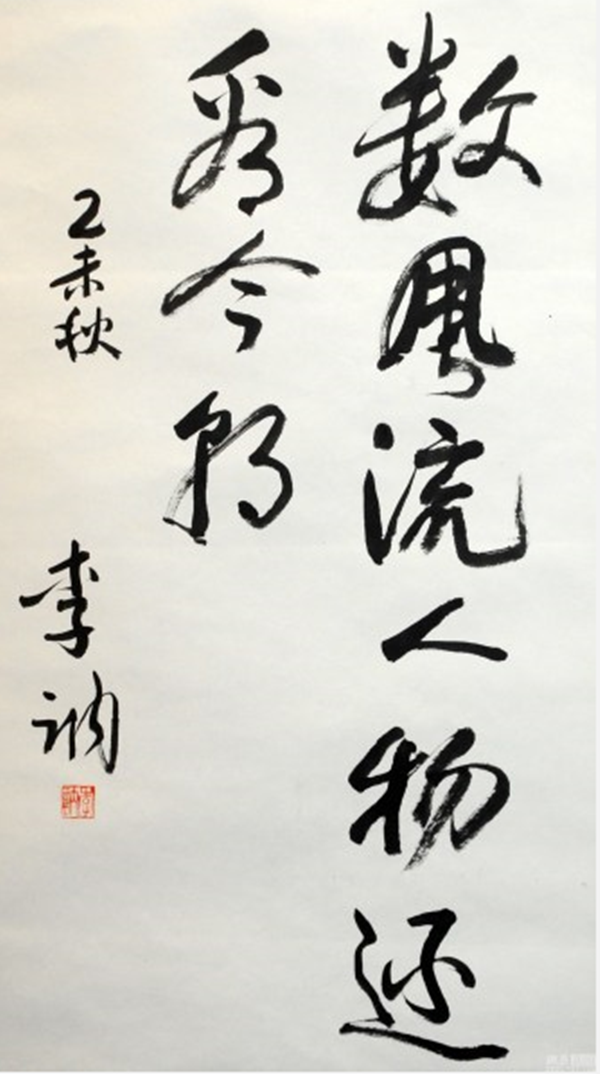 数风流人物还
看今朝
乙未秋
李讷